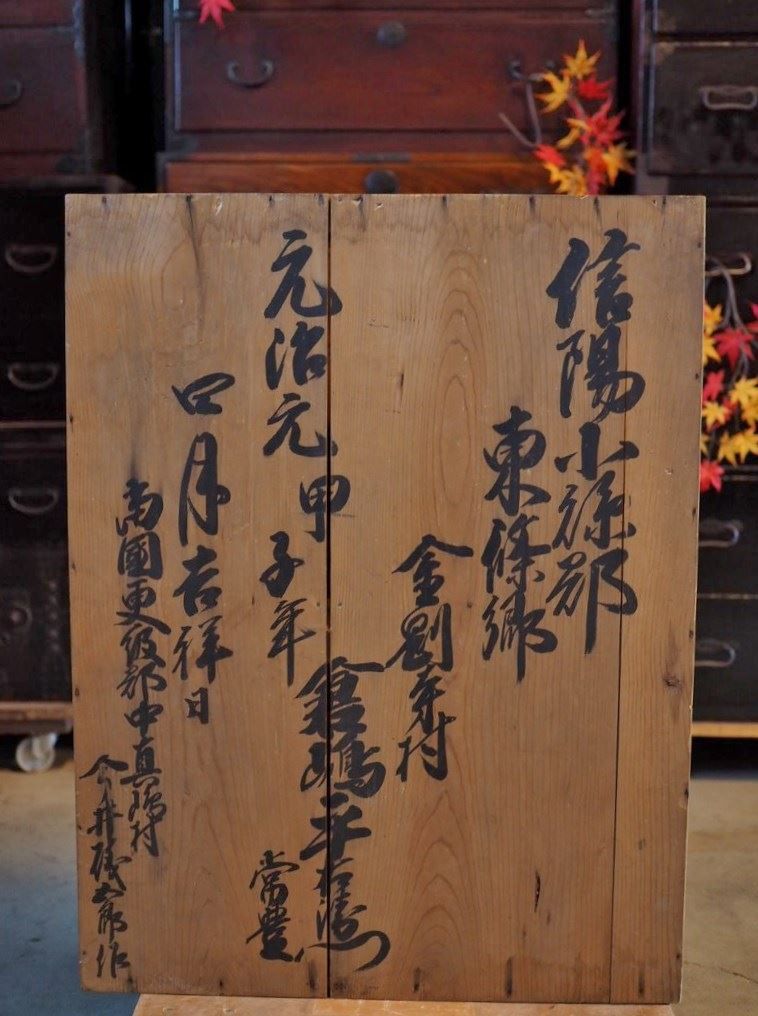 信陽小縣郡
東條郷
金剛寺村
倉嶋平右衛門
常豊
元治元甲子年
四月吉祥日
當國更級郡中真嶋村
今井磯五郎作